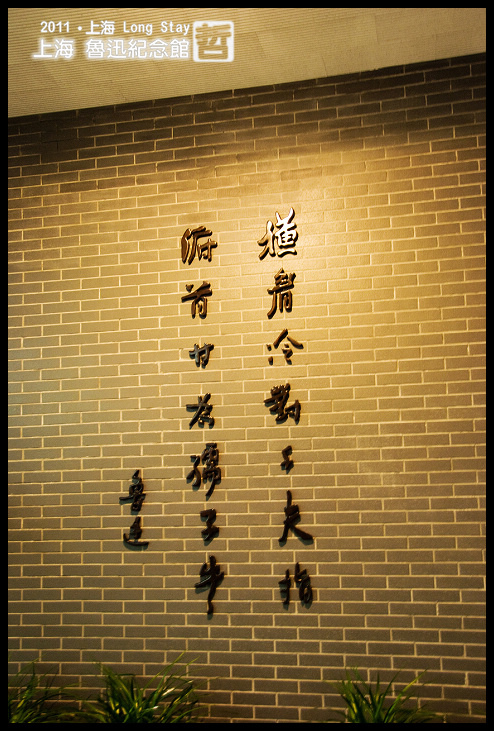 2011‧上海 Long Stay
上海 魯迅紀念館 哲
橫眉冷對千夫指
俯首甘為孺子牛
魯迅